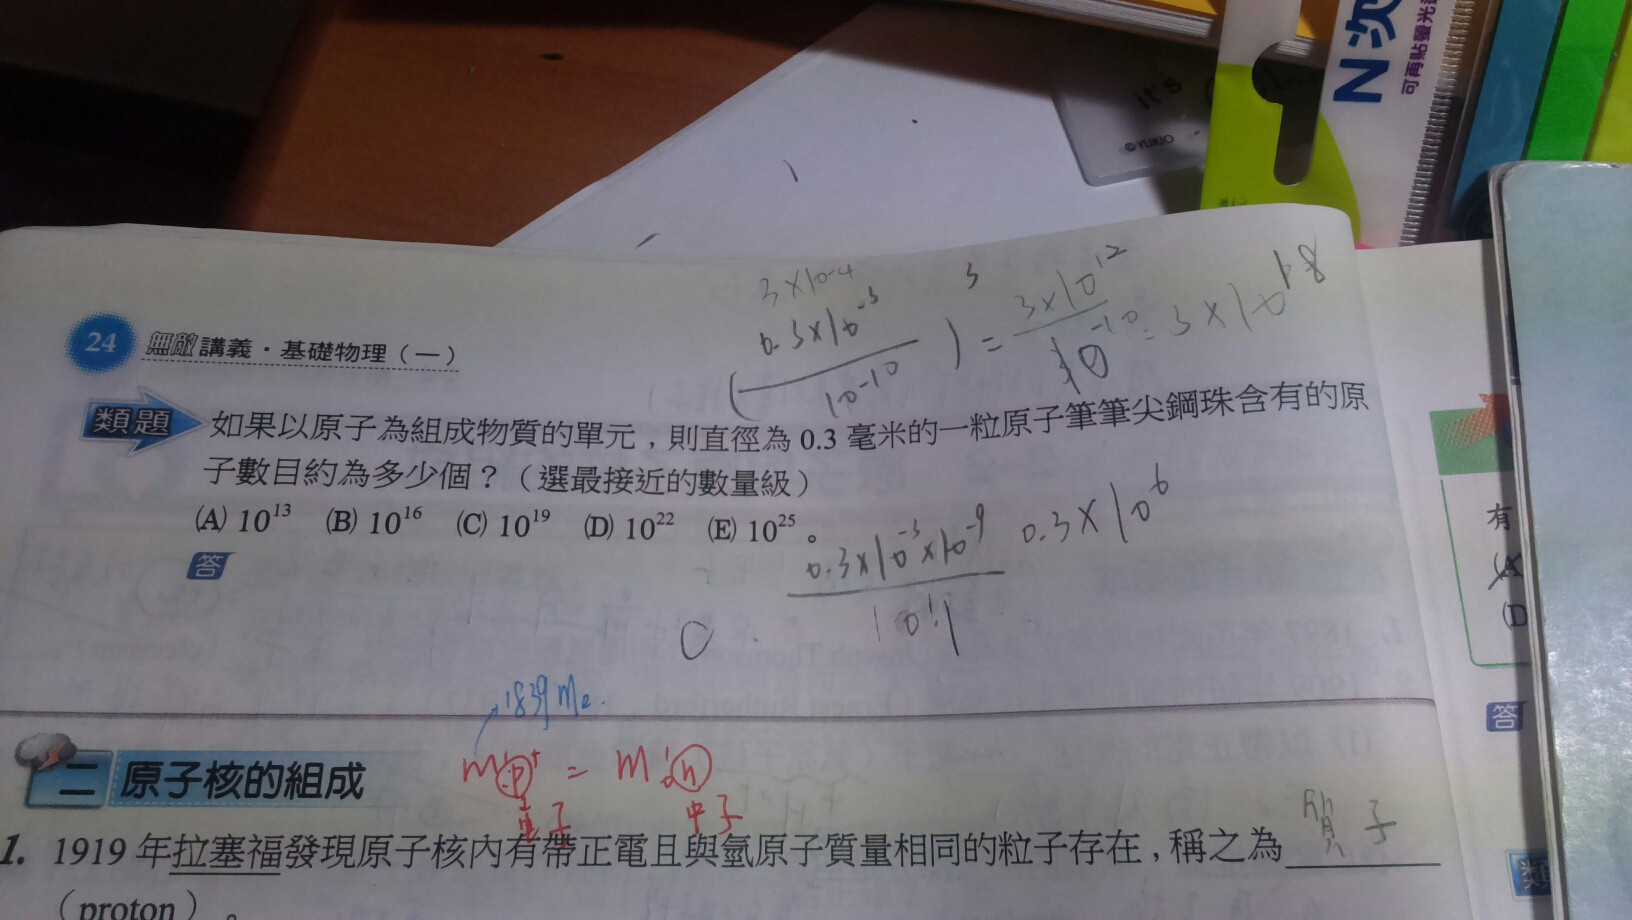 N次
可再貼螢光
it's
©YUKIO
3×10-4
0.3×10-3
10-10
( )3 = 3×10 12 / 10 -10 = 3×10 18
24 無敵講義・基礎物理(一)
類題 如果以原子為組成物質的單元,則直徑為 0.3 毫米的一粒原子筆筆尖鋼珠含有的原
子數目約為多少個?(選最接近的數量級)
(A) 10¹³ (B) 10¹⁶ (C) 10¹⁹ (D) 10²² (E) 10²⁵ 。
答
0.3×10-3×10-9 0.3×10 6
有
(A
(D
答
1839 me.
二 原子核的組成
mp+ = mn
中子
1. 1919 年拉塞福發現原子核內有帶正電且與氫原子質量相同的粒子存在,稱之為 質子
(proton)。